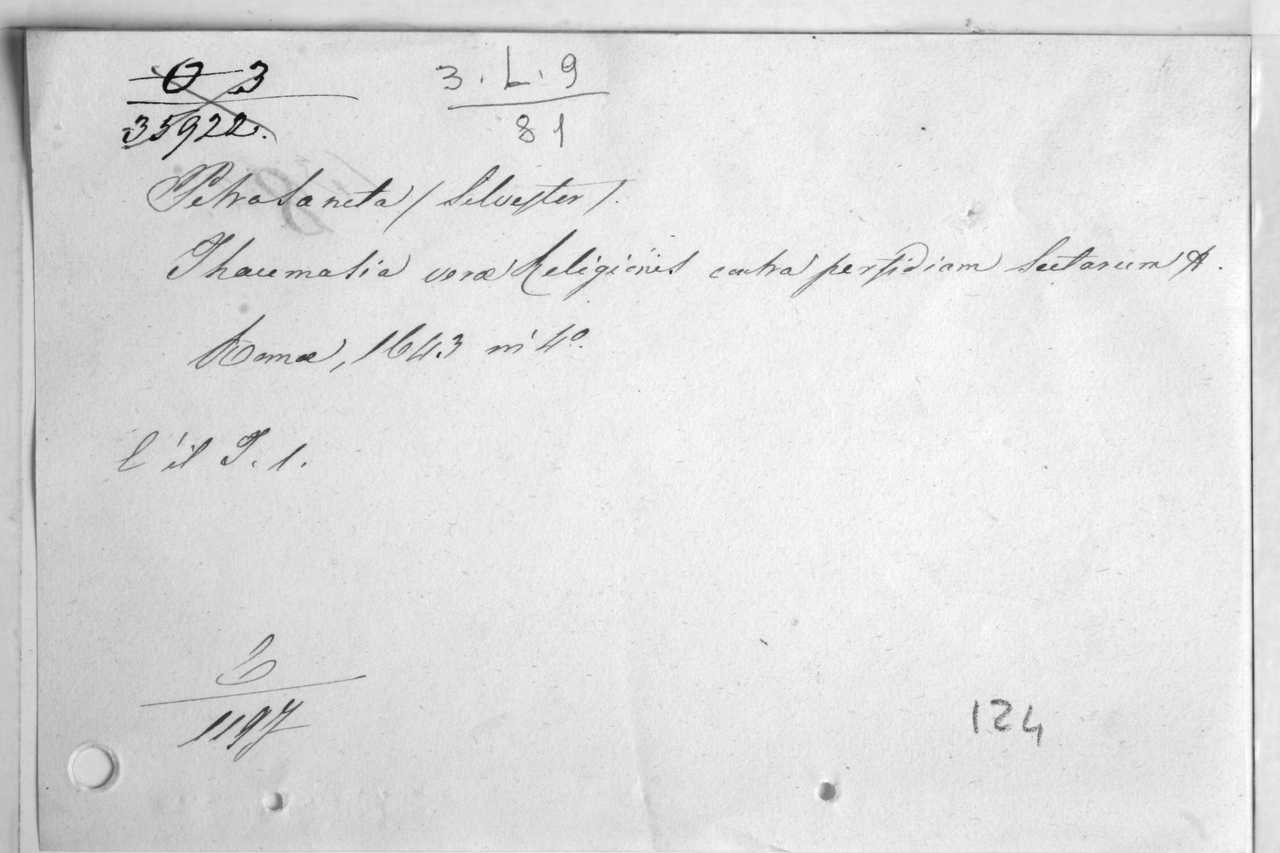 O 3
35922.
3. L. 9
81
Petrasancta (Silvester).
Thaumasia veræ Religionis contra perfidiam Sectarum
Romæ, 1643 in 4º.
T. 1.
1197
124